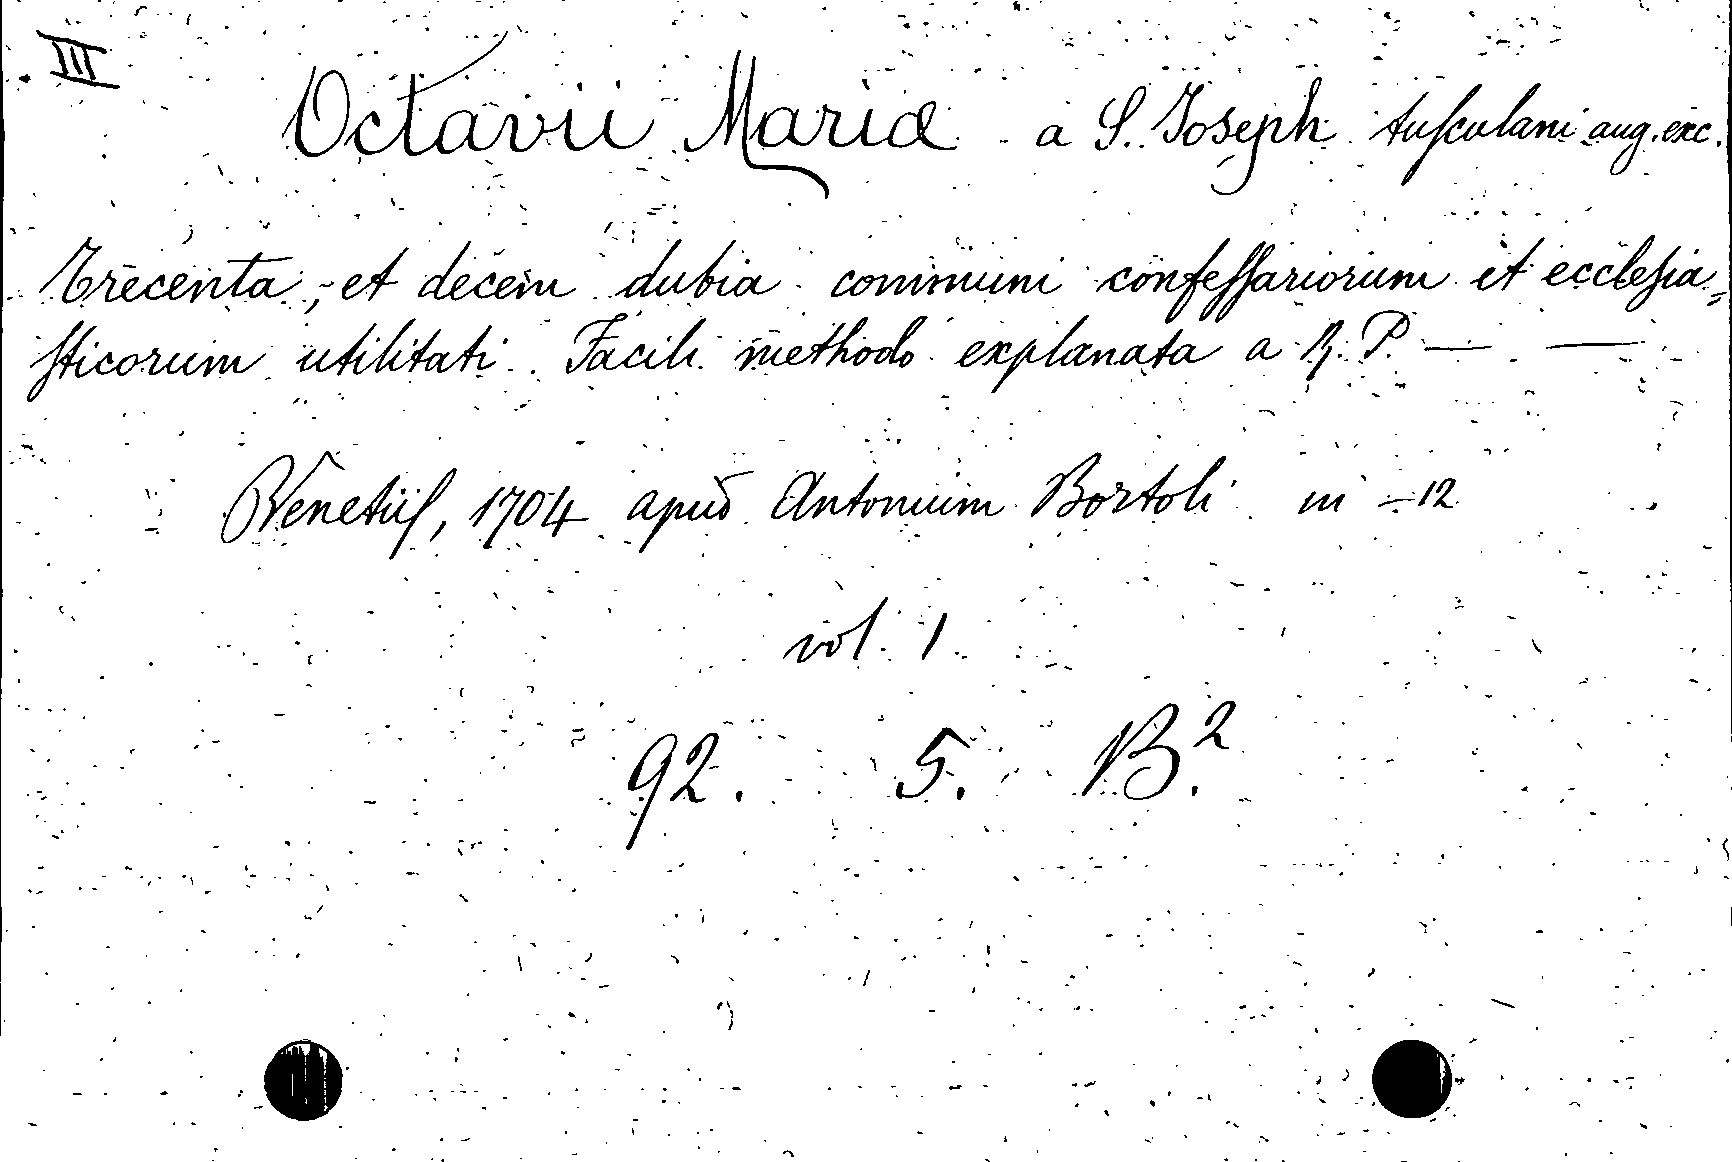 III
Octavii Mariæ a S. Joseph tuſculani aug. exc.
Trecenta, et decem dubia communi confeſſariorum et eccleſia=
ſticorum utilitati. Facili methodo explanata a R. P. — —
Venetiiſ, 1704 apud Antonium Bortoli in - 12
vol. 1.
92. 5. B.²